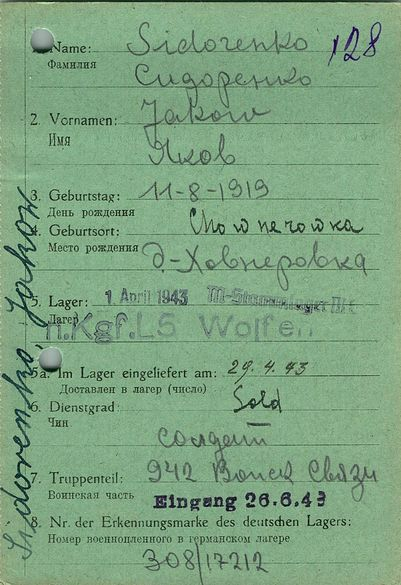 1. Name: Sidorenko 128
Фамилия Сидоренко
2. Vornamen: Jakow
Имя Яков
3. Geburtstag: 11-8-1919
День рождения
4. Geburtsort:
Место рождения д-Ховнеровка
5. Lager: 1. April 1943
Лагер
n.Kgf.LS Wolfen
5a. Im Lager eingeliefert am: 29.4.43
Доставлен в лагер (число)
6. Dienstgrad: Sold
Чин солдат
7. Truppenteil: 942 Войск Связи
Воинская часть Eingang 26.6.43
8. Nr. der Erkennungsmarke des deutschen Lagers:
Номер военнопленного в германском лагере
308/17212
Sidorenko, Jakow